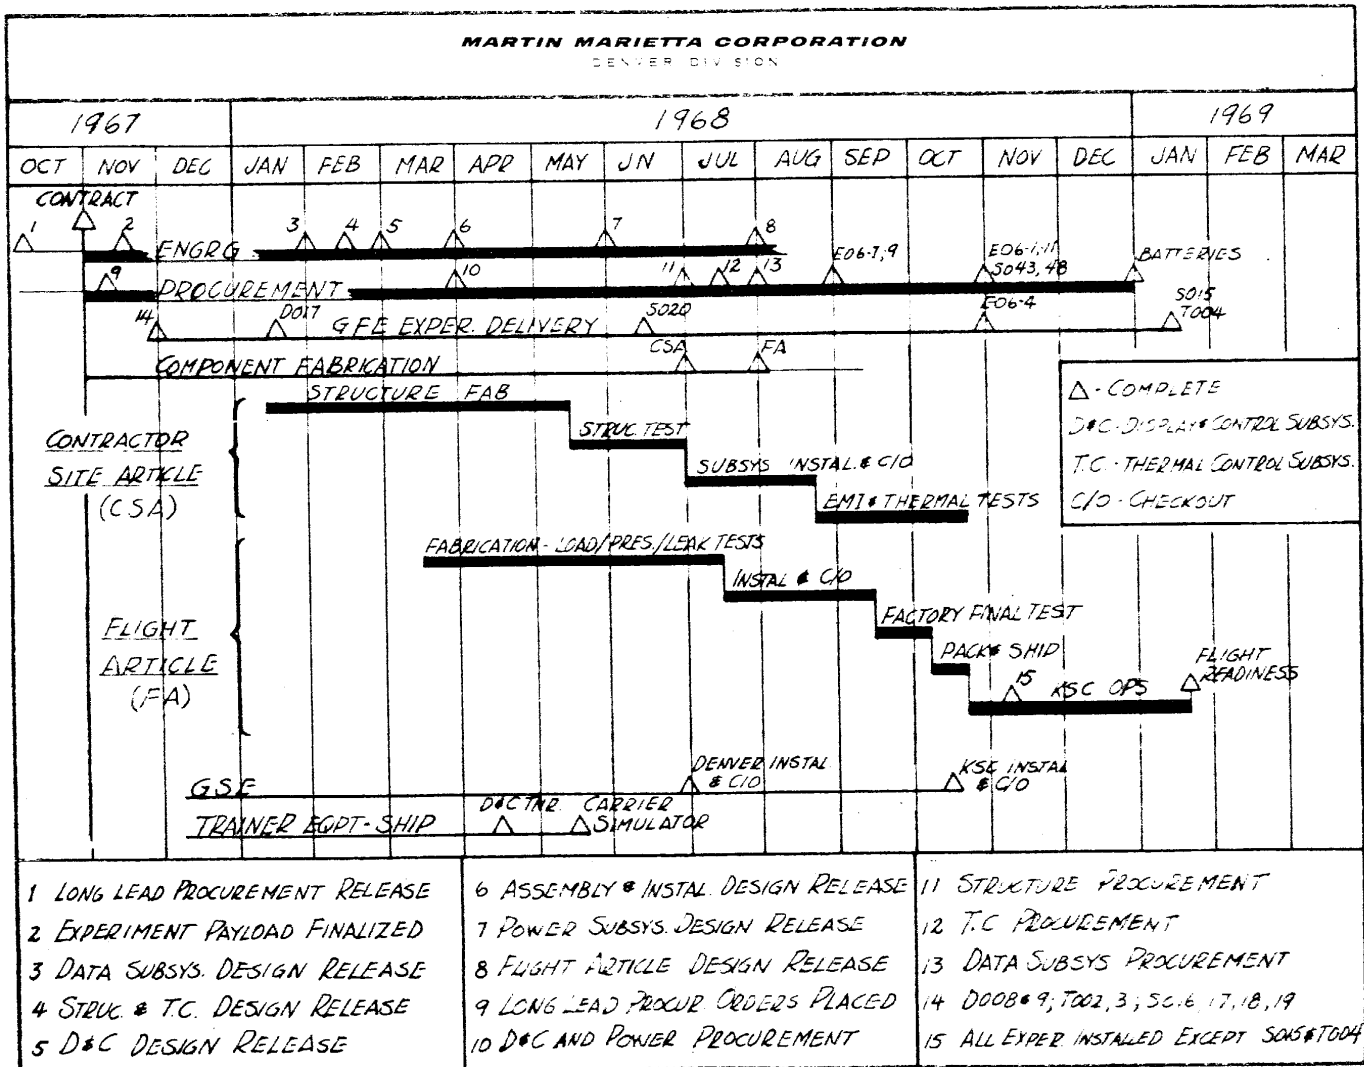 MARTIN MARIETTA CORPORATION
DENVER DIVISION
1967 1968 1969
OCT NOV DEC JAN FEB MAR APR MAY JN JUL AUG SEP OCT NOV DEC JAN FEB MAR
CONTRACT
1 2 3 4 5 6 7 8
ENGRG
E06-1,11
9 10 11 12 13 E06-7,9 S043,48 BATTERIES
PROCUREMENT
14 D017 S020 E06-4 S015
T004
GFE EXPER. DELIVERY
CSA FA
COMPONENT FABRICATION
STRUCTURE FAB
STRUC. TEST
CONTRACTOR
SITE ARTICLE
(CSA)
SUBSYS INSTAL. & C/O
EMI & THERMAL TESTS
△ - COMPLETE
D&C - DISPLAY & CONTROL SUBSYS.
T.C. - THERMAL CONTROL SUBSYS.
C/O - CHECKOUT
FABRICATION - LOAD/PRES./LEAK TESTS
INSTAL & C/O
FLIGHT
ARTICLE
(FA)
FACTORY FINAL TEST
PACK & SHIP
15 KSC OPS
FLIGHT
READINESS
GSE
DENVER INSTAL
& C/O
KSC INSTAL
& C/O
TRAINER EQPT-SHIP
D&C TNR. CARRIER
SIMULATOR
1 LONG LEAD PROCUREMENT RELEASE
2 EXPERIMENT PAYLOAD FINALIZED
3 DATA SUBSYS. DESIGN RELEASE
4 STRUC. & T.C. DESIGN RELEASE
5 D&C DESIGN RELEASE
6 ASSEMBLY & INSTAL. DESIGN RELEASE
7 POWER SUBSYS. DESIGN RELEASE
8 FLIGHT ARTICLE DESIGN RELEASE
9 LONG LEAD PROCUR. ORDERS PLACED
10 D&C AND POWER PROCUREMENT
11 STRUCTURE PROCUREMENT
12 T.C PROCUREMENT
13 DATA SUBSYS PROCUREMENT
14 D008 & 9; T002, 3; 17, 18, 19
15 ALL EXPER. INSTALLED EXCEPT S015 & T004